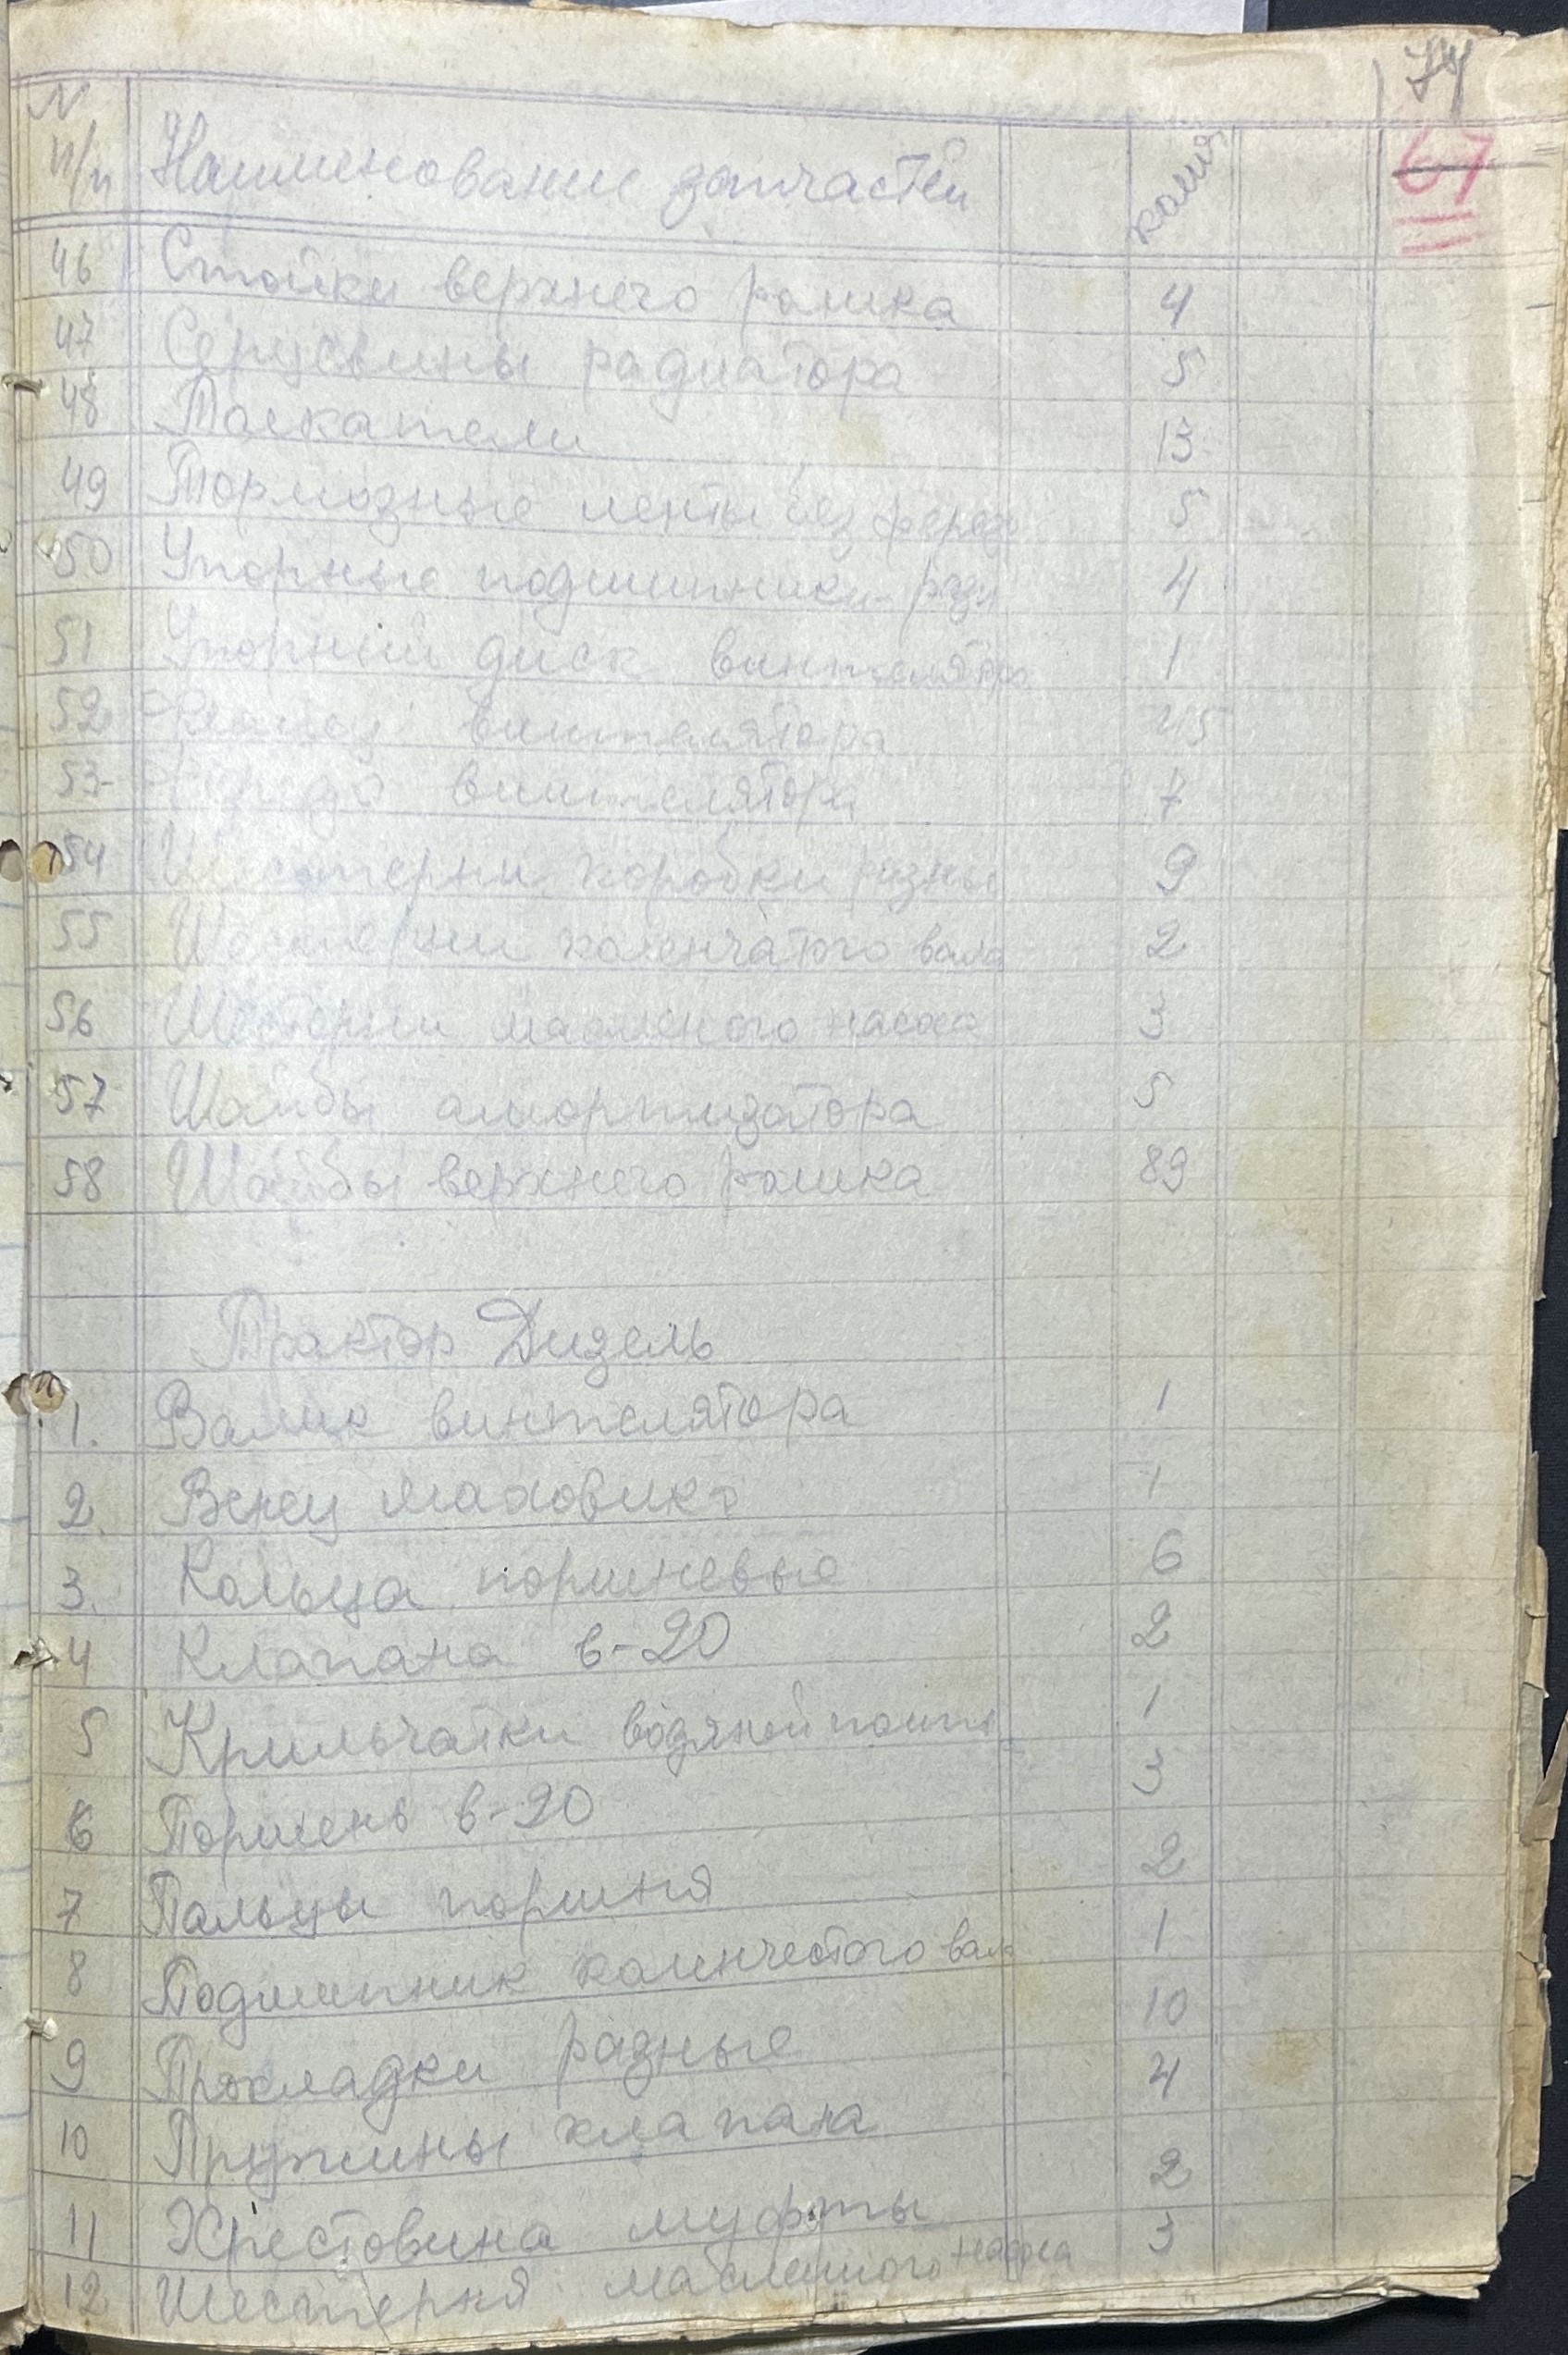 74
67
N п/п Наименование запчастей колич
46 Стойки верхнего ролика 4
47 Серцевины радиатора 5
48 Толкатели 13
49 Тормозные ленты без 5
50 Упорные подшипники 4
51 Упорный диск винтелятора 1
52 винтелятора 45
53 винтелятора 7
54 Шестерни коробки разные 9
55 Шестерни коленчатого вала 2
56 Шестерни масленого насоса 3
57 Шайбы амортизатора 5
58 Шайбы верхнего ролика 89
Трактор Дизель
1. Валик винтелятора 1
2. Венец маховика 1
3. Кольца поршневые 6
4 Клапана в-20 2
5 Крильчатки водяной помпы 1
6 Поршень в-20 3
7 Пальцы поршня 2
8 Подшипник коленчетого вала 1
9 Прокладки разные 10
10 Пружины клапана 4
11 Хрестовина муфты 2
12 Шестерня масленного насоса 3